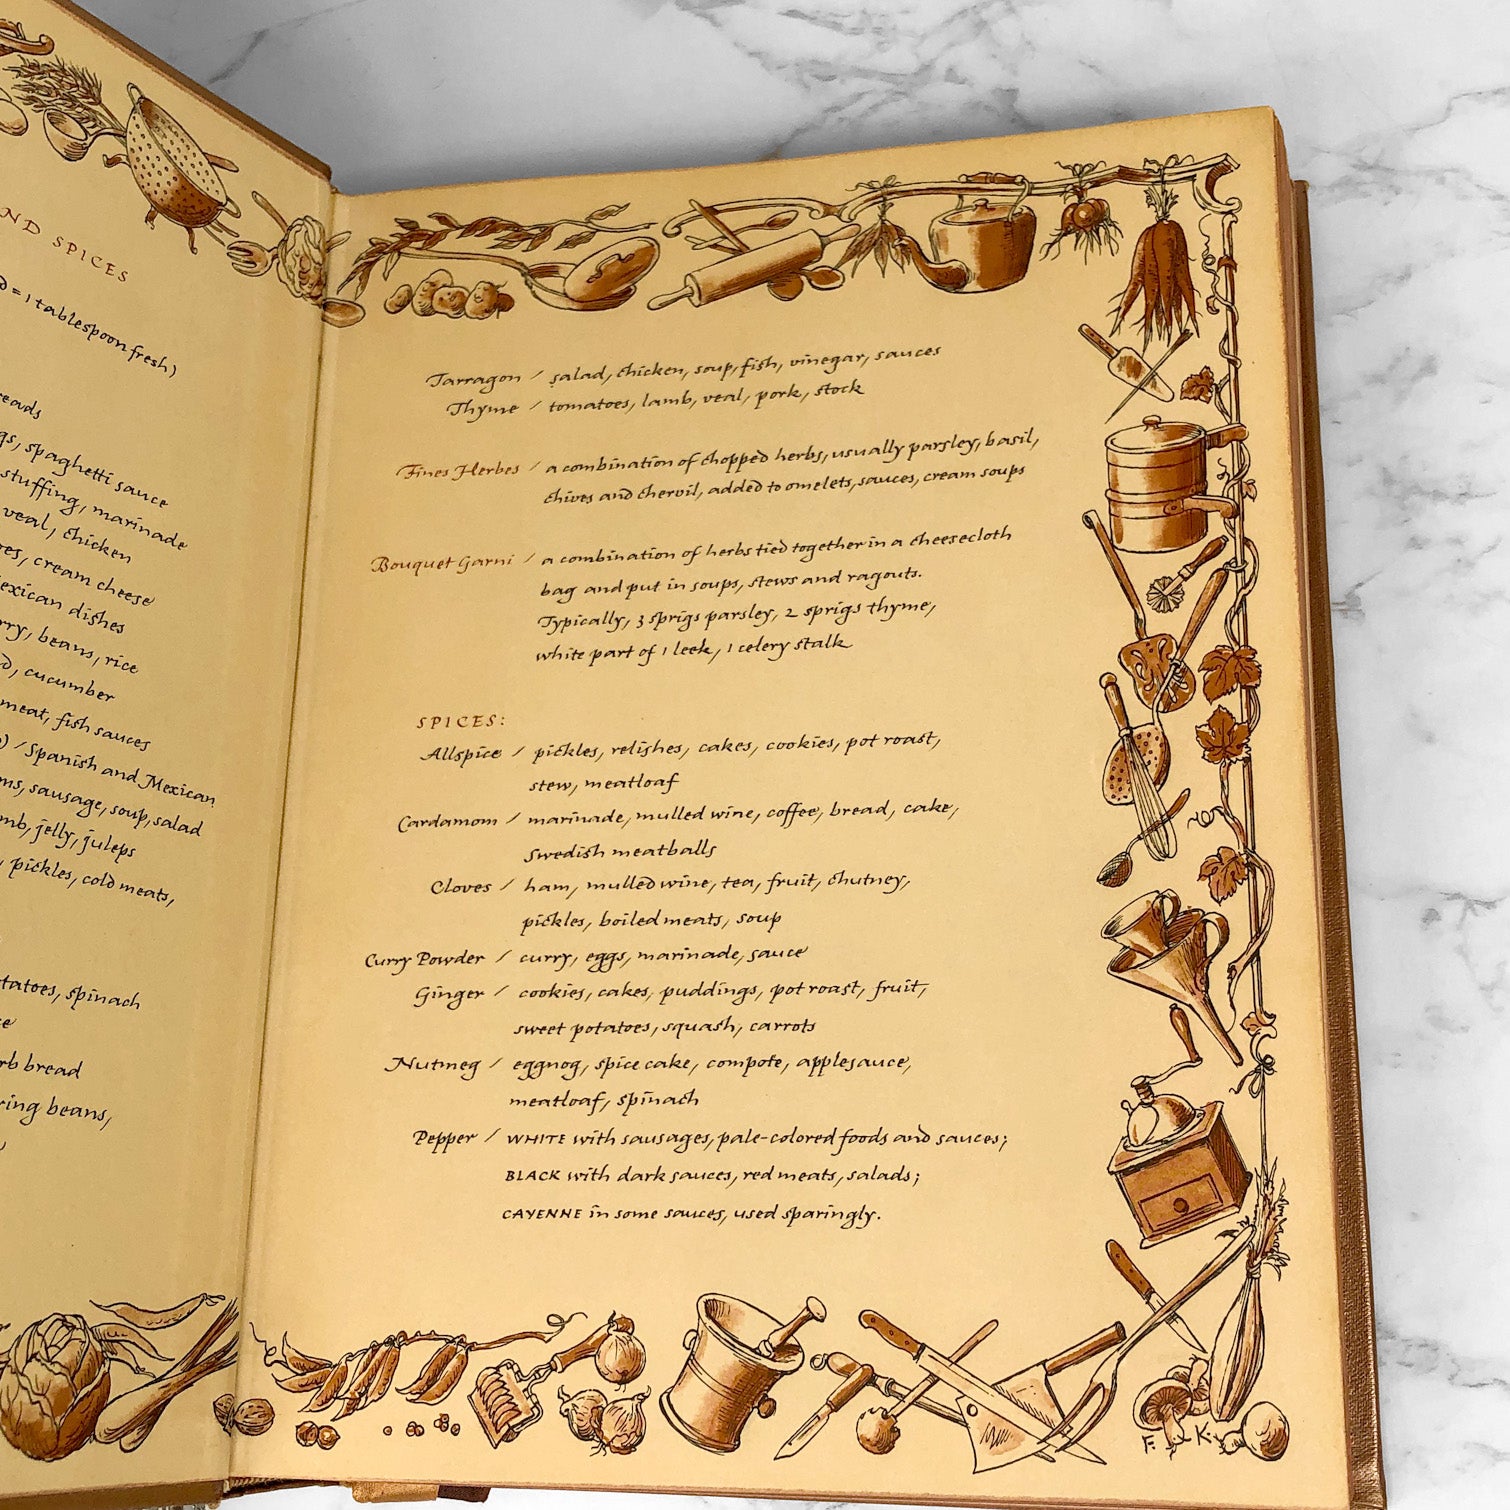 AND SPICES
= 1 tablespoon fresh)
spaghetti sauce
stuffing, marinade
veal, chicken
cream cheese
dishes
beans, rice
cucumber
meat, fish sauces
/ Spanish and Mexican
sausage, soup, salad
jelly, juleps
pickles, cold meats,
spinach
bread
beans,
Tarragon / salad, chicken, soup, fish, vinegar, sauces
Thyme / tomatoes, lamb, veal, pork, stock
Fines Herbes / a combination of chopped herbs, usually parsley, basil,
chives and chervil, added to omelets, sauces, cream soups
Bouquet Garni / a combination of herbs tied together in a cheesecloth
bag and put in soups, stews and ragouts.
Typically, 3 sprigs parsley, 2 sprigs thyme,
white part of 1 leek, 1 celery stalk
SPICES:
Allspice / pickles, relishes, cakes, cookies, pot roast,
stew, meatloaf
Cardamom / marinade, mulled wine, coffee, bread, cake,
Swedish meatballs
Cloves / ham, mulled wine, tea, fruit, chutney,
pickles, boiled meats, soup
Curry Powder / curry, eggs, marinade, sauce
Ginger / cookies, cakes, puddings, pot roast, fruit,
sweet potatoes, squash, carrots
Nutmeg / eggnog, spice cake, compote, applesauce,
meatloaf, spinach
Pepper / WHITE with sausages, pale-colored foods and sauces;
BLACK with dark sauces, red meats, salads;
CAYENNE in some sauces, used sparingly.
F. K.